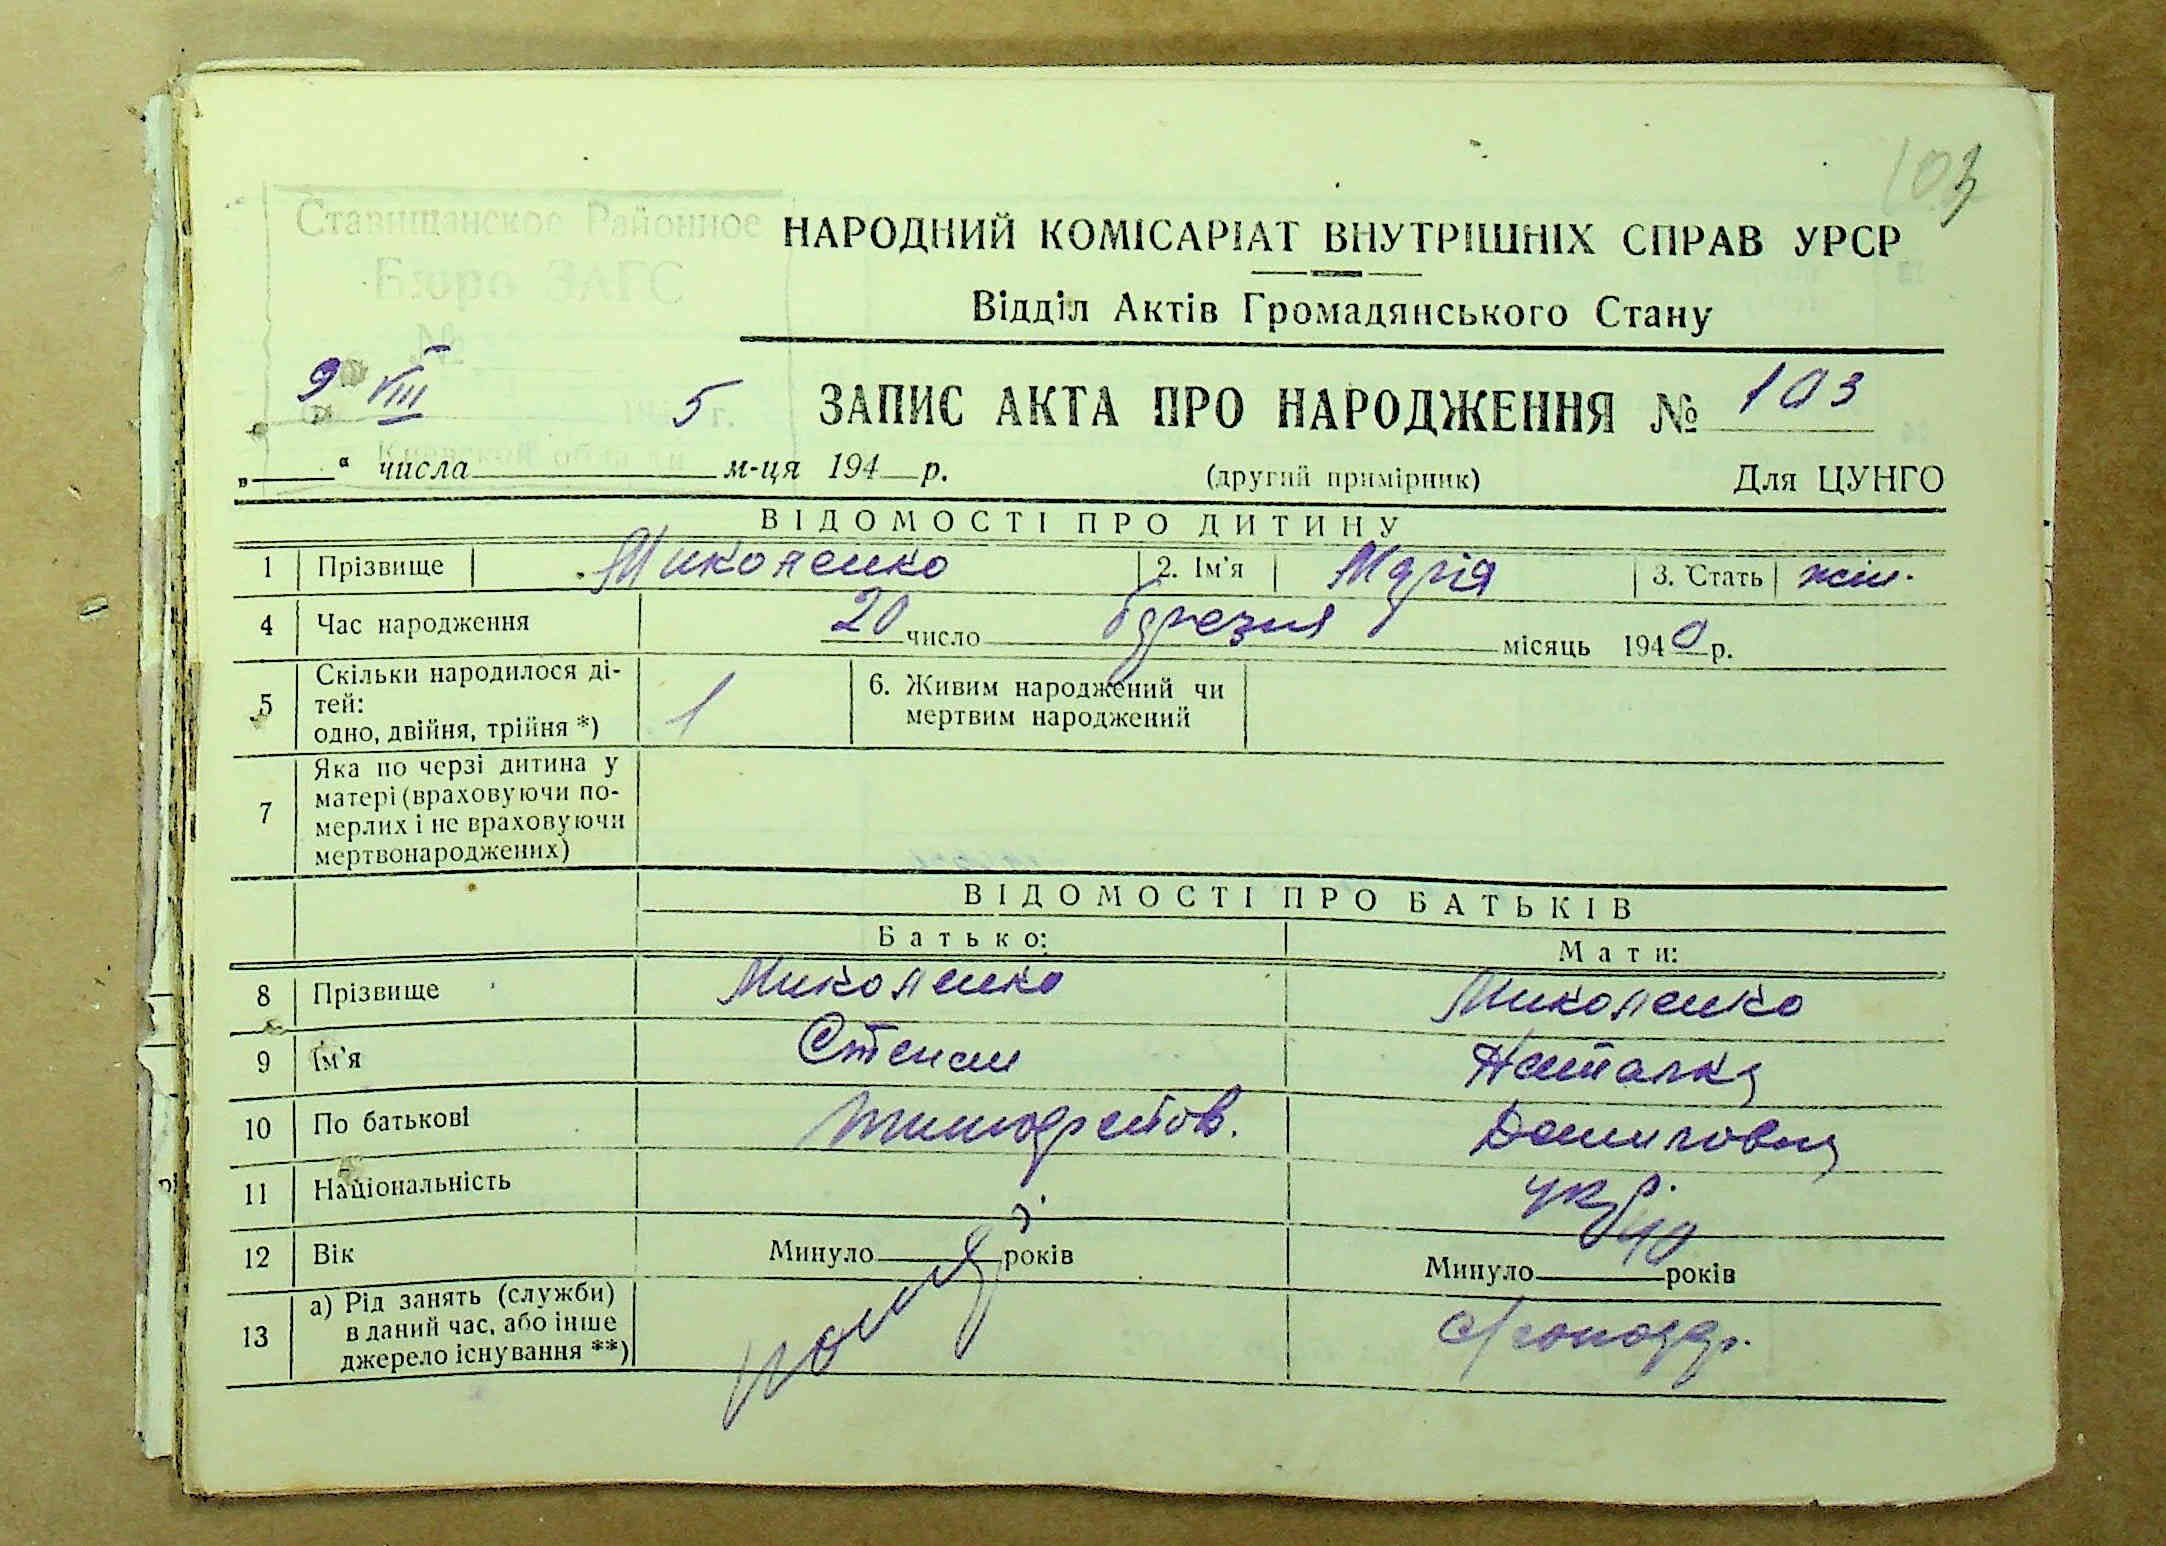 103
Ставищанское Районное
НАРОДНИЙ КОМІСАРІАТ ВНУТРІШНІХ СПРАВ УРСР
Бюро ЗАГС
Відділ Актів Громадянського Стану
№
9 VIII 5 ЗАПИС АКТА ПРО НАРОДЖЕННЯ № 103
194 г.
Киевской области
„ “ числа м-ця 194 р. (другий примірник) Для ЦУНГО
ВІДОМОСТІ ПРО ДИТИНУ
1 Прізвище Миколенко 2. Ім'я Марія 3. Стать жін.
4 Час народження 20 число березня місяць 1940 р.
5 Скільки народилося ді-
тей:
одно, двійня, трійня *) 1 6. Живим народжений чи
мертвим народжений
7 Яка по черзі дитина у
матері (враховуючи по-
мерлих і не враховуючи
мертвонароджених)
ВІДОМОСТІ ПРО БАТЬКІВ
Батько: Мати:
8 Прізвище Миколенко Миколенко
9 Ім'я Степан Наталка
10 По батькові Даниловна
11 Національність укр.
12 Вік Минуло років Минуло 40 років
13 а) Рід занять (служби)
в даний час, або інше
джерело існування **)